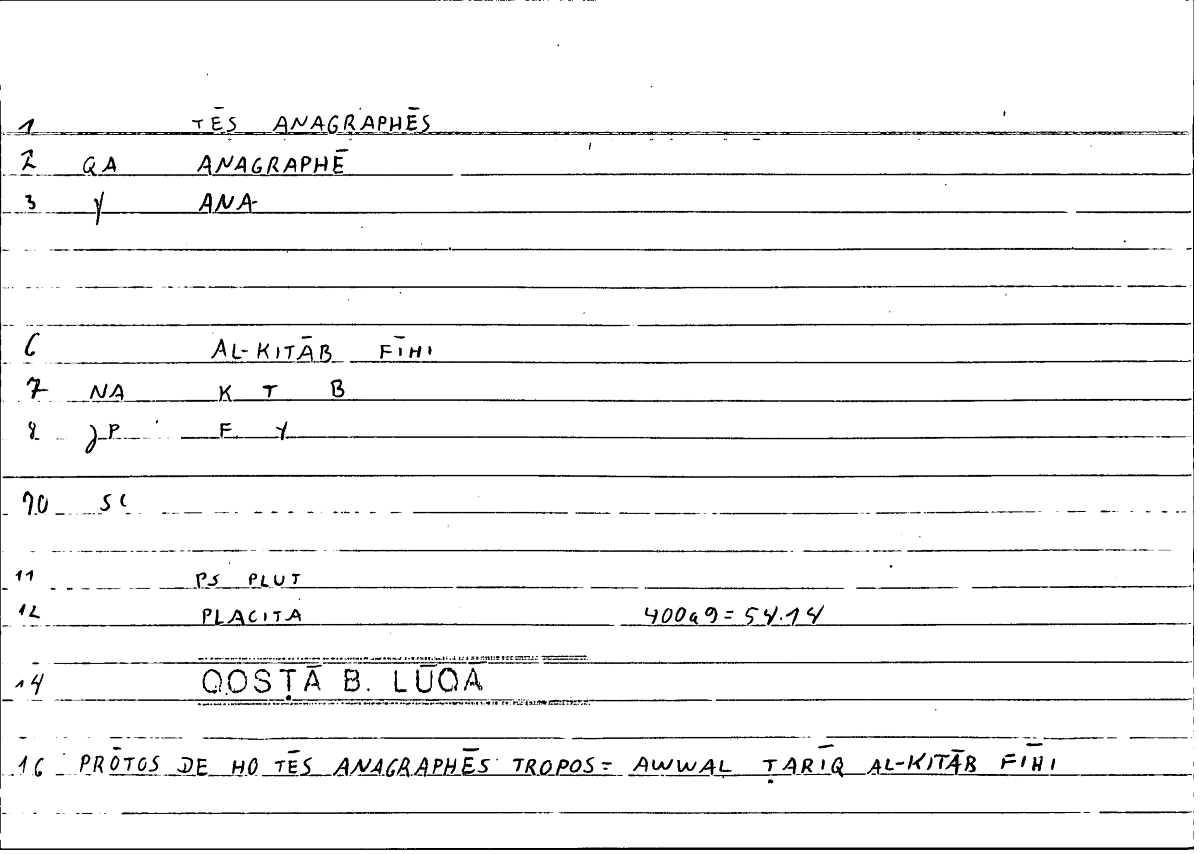 1 TĒS ANAGRAPHĒS
2 QA ANAGRAPHĒ
3 γ ANA-
6 AL-KITĀB FĪHI
7 NA K T B
8 JP F Y
10 SC
11 PS PLUT
12 PLACITA 400a9=54.14
14 QOSṬĀ B. LŪQĀ
16 PRŌTOS DE HO TĒS ANAGRAPHĒS TROPOS= AWWAL ṬARĪQ AL-KITĀB FĪHI